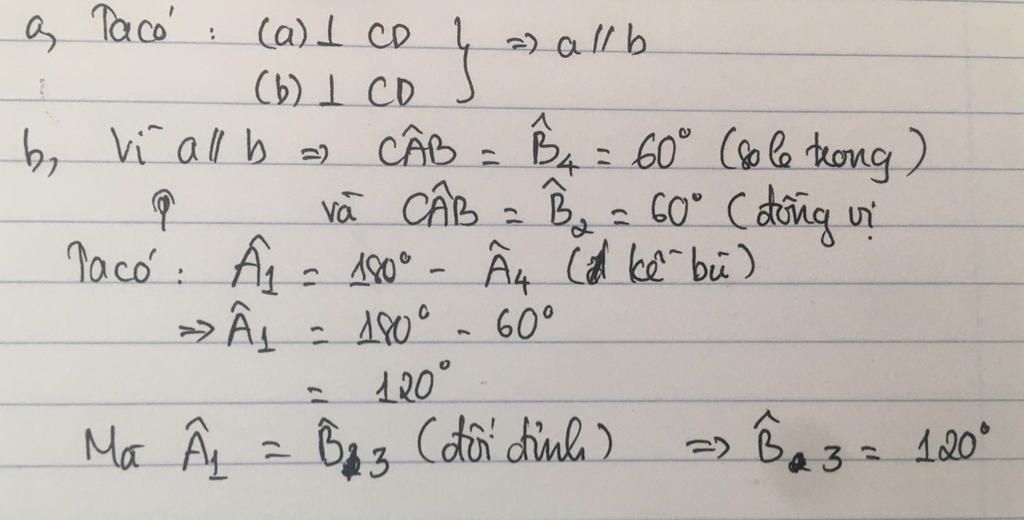 a, Ta có : (a) ⊥ CD } => a // b
(b) ⊥ CD
b, Vì a // b => CÂB = B̂4 = 60° (so le trong)
và CÂB = B̂2 = 60° (đồng vị
Ta có : Â1 = 180° - Â4 (kề bù)
=> Â1 = 180° - 60°
= 120°
Mà Â1 = B̂3 (đối đỉnh) => B̂3 = 120°